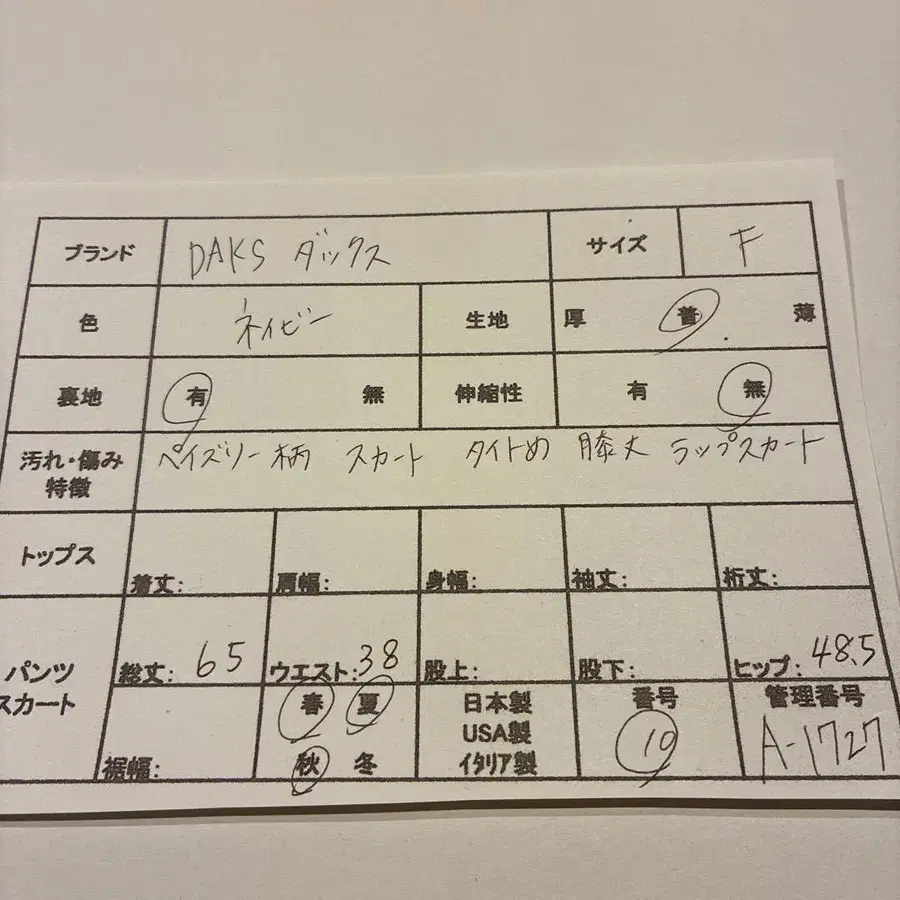 ブランド DAKS ダックス サイズ F
色 ネイビー 生地 厚 普 薄
裏地 有 無 伸縮性 有 無
汚れ・傷み
特徴 ペイズリー柄 スカート タイトめ 膝丈 ラップスカート
トップス 着丈: 肩幅: 身幅: 袖丈: 裄丈:
パンツ
スカート 総丈: 65 ウエスト: 38 股上: 股下: ヒップ: 48.5
裾幅: 春 夏
秋 冬
日本製
USA製
イタリア製
番号
10
管理番号
A-1727